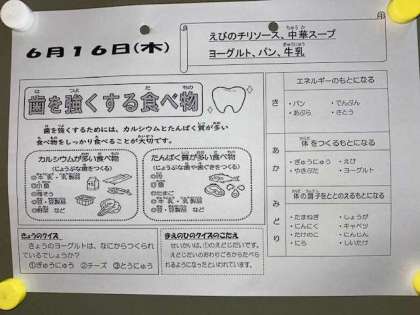 6月16日(木)
えびのチリソース、中華スープ
ヨーグルト、パン、牛乳
歯を強くする食べ物
歯を強くするためには、カルシウムとたんぱく質が多い
食べ物をしっかり食べることが大切です。
カルシウムが多い食べ物
(じょうぶな歯をつくる)
◎牛乳・乳製品
◎小魚
◎海そう
◎豆・豆製品
◎野菜 など
たんぱく質が多い食べ物
(じょうぶな歯や歯ぐきをつくる)
◎肉
◎魚
◎たまご
◎豆・豆製品 など
きょうのクイズ
きょうのヨーグルトは、なにからつくられ
ているでしょうか?
①ぎゅうにゅう ②チーズ ③とうにゅう
まえのひのクイズのこたえ
せいかいは、①のえどじだいです。
えどじだいのおわりごろからたべ
られるようになったといわれています。
き
エネルギーのもとになる
・パン ・でんぷん
・あぶら ・さとう
あか
体をつくるもとになる
・ぎゅうにゅう ・えび
・やきぶた ・ヨーグルト
みどり
体の調子をととのえるもとになる
・たまねぎ ・しょうが
・にんにく ・キャベツ
・たけのこ ・にんじん
・にら ・しいたけ